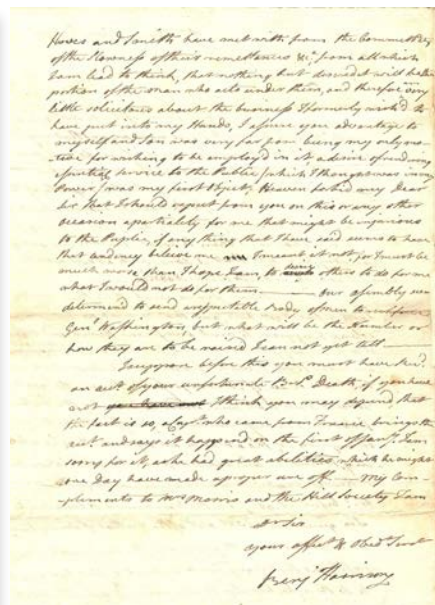 Howes and Smith have met with from the Committee
of the Slowness of their remittances &c. from all which
I am lead to think, that nothing but discredit will be the
portion of the man who acts under them, and therefore am very
little solicitous about the business I formerly wish'd to
have put into my Hands, I assure you advantage to
myself and Son was very far from being my only mo-
tive for wishing to be employ'd in it a desire of rendering
essential service to the Public (which I thought was in my
Power) was my first Object, Heaven forbid my Dear
Sir that I should expect from you on this or any other
occasion a partiality for me that might be injurious
to the Public, if any thing that I have said seems to have
that tendency believe me I meant it not, for I must be
much worse than I hope I am, to desire others to do for me
what I would not do for them — our assembly are
determin'd to send a respectable Body of men to reinforce
Genl. Washington, but what will be the Number or
how they are to be raised I can not yet tell
I suppose before this you must have Recd.
an acct. of your unfortunate Br. Death, if you have
not you have not I think you may depend that
the fact is so, a Capt. who came from France brings the
acct. and says it happened on the first of Jany. I am
sorry for it, as he had great abilities which he might
one day have made a proper use off — My Com-
plements to Mrs Morris and the Hill Society I am
Dr Sir
your affect. & Obed. Servt
Benj Harrison